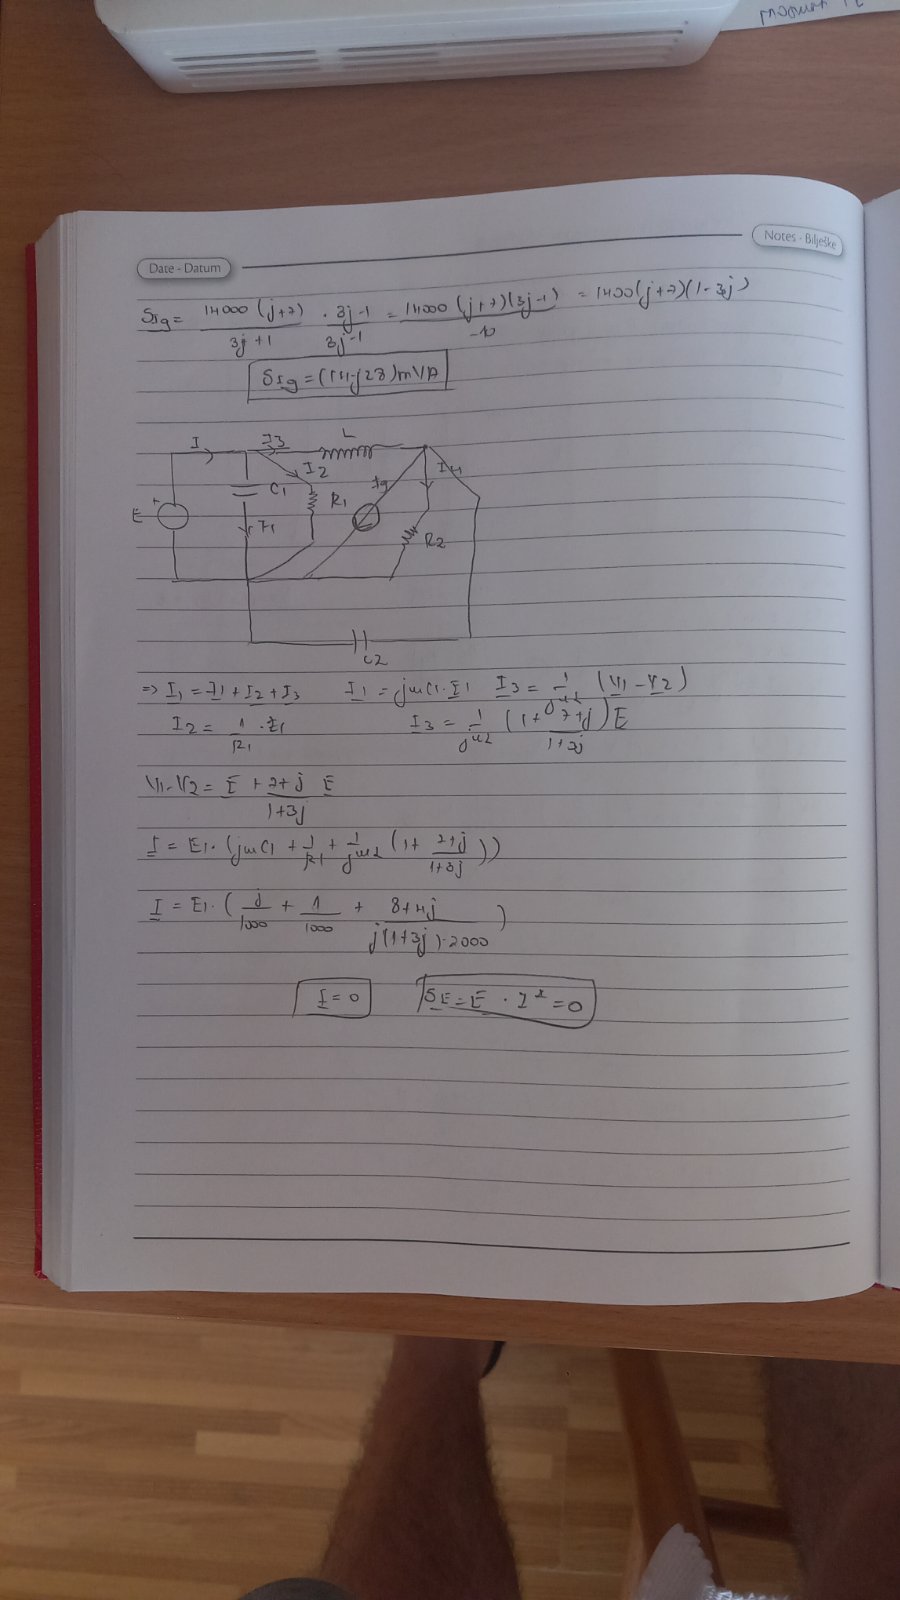 Notes - Bilješke
Date - Datum
SIg = 14000 (j+7) / 3j+1 · 3j-1 / 3j-1 = 14000 (j+7)(3j-1) / -10 = 1400(j+7)(1-3j)
SIg = (14-j28)mVA
I I3 L
I2 I4
E + C1 R1 Ig
I1 R2
C2
=> I1 = I1 + I2 + I3 I1 = jωC1·E1 I3 = 1/jωL (V1-V2)
I2 = 1/R1 · E1 I3 = 1/jωL (1+ 7+j/1+3j)E
V1-V2 = E + 7+j/1+3j E
I = E1·(jωC1 + 1/R1 + 1/jωL (1+ 7+j/1+3j))
I = E1·(j/1000 + 1/1000 + 8+4j/j(1+3j)·2000)
I=0 SE = E · I* = 0